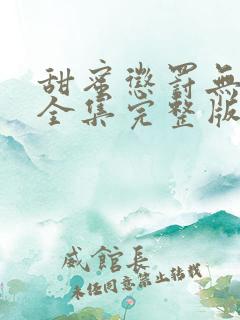 甜蜜懲罰無
全集完整版
威館長
未经同意禁止转载